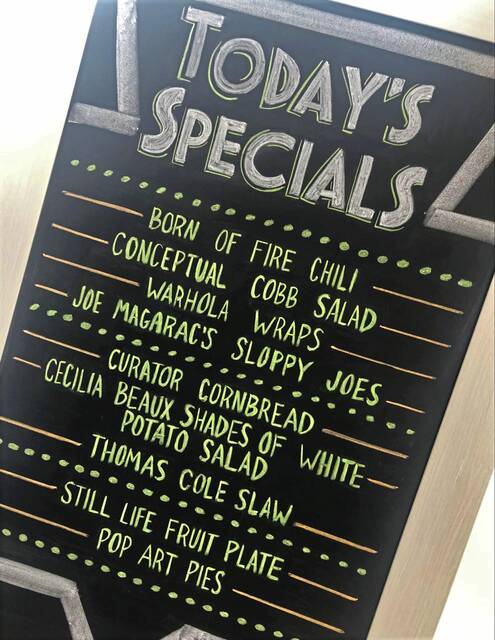 TODAY'S
SPECIALS
BORN OF FIRE CHILI
CONCEPTUAL COBB SALAD
WARHOLA WRAPS
JOE MAGARAC'S SLOPPY JOES
CURATOR CORNBREAD
CECILIA BEAUX SHADES OF WHITE
POTATO SALAD
THOMAS COLE SLAW
STILL LIFE FRUIT PLATE
POP ART PIES